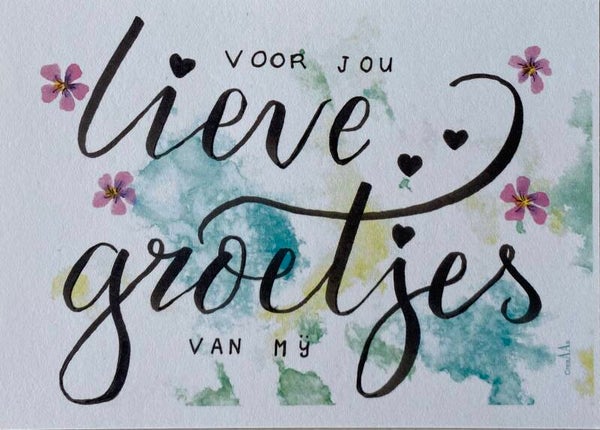 VOOR JOU
lieve
groetjes
VAN MIJ